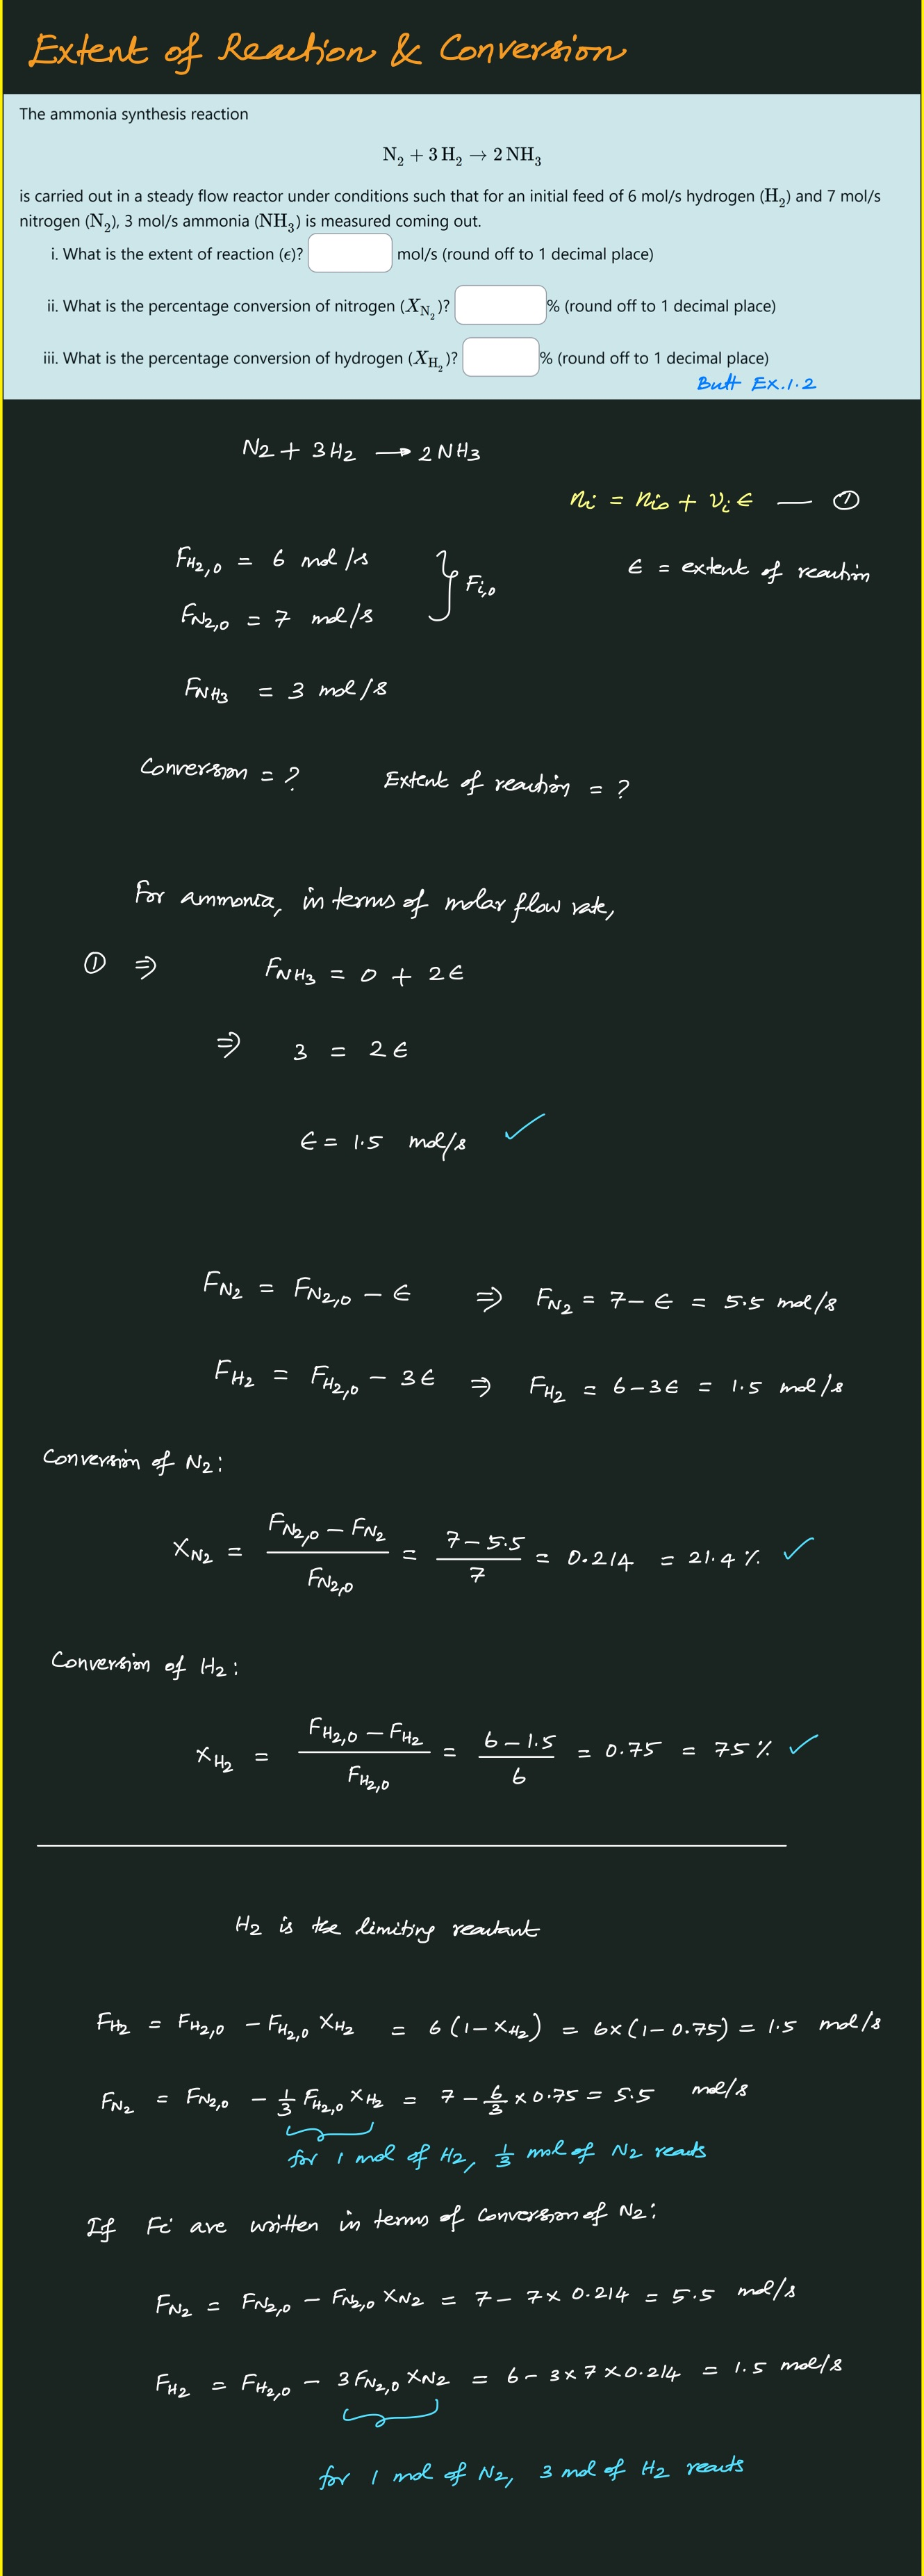 Extent of Reaction & Conversion
The ammonia synthesis reaction
N₂ + 3 H₂ → 2 NH₃
is carried out in a steady flow reactor under conditions such that for an initial feed of 6 mol/s hydrogen (H₂) and 7 mol/s
nitrogen (N₂), 3 mol/s ammonia (NH₃) is measured coming out.
i. What is the extent of reaction (ϵ)? mol/s (round off to 1 decimal place)
ii. What is the percentage conversion of nitrogen (X_N₂)? % (round off to 1 decimal place)
iii. What is the percentage conversion of hydrogen (X_H₂)? % (round off to 1 decimal place)
Butt Ex.1.2
N2 + 3H2 → 2NH3
ni = nio + νi ϵ — ①
F_H2,0 = 6 mol/s
ϵ = extent of reaction
F_i,0
F_N2,0 = 7 mol/s
F_NH3 = 3 mol/s
Conversion = ? Extent of reaction = ?
For ammonia, in terms of molar flow rate,
① ⇒ F_NH3 = 0 + 2ϵ
⇒ 3 = 2ϵ
ϵ = 1.5 mol/s ✓
F_N2 = F_N2,0 − ϵ ⇒ F_N2 = 7 − ϵ = 5.5 mol/s
F_H2 = F_H2,0 − 3ϵ ⇒ F_H2 = 6 − 3ϵ = 1.5 mol/s
Conversion of N2:
X_N2 = (F_N2,0 − F_N2) / F_N2,0 = (7 − 5.5) / 7 = 0.214 = 21.4 % ✓
Conversion of H2:
X_H2 = (F_H2,0 − F_H2) / F_H2,0 = (6 − 1.5) / 6 = 0.75 = 75 % ✓
H2 is the limiting reactant
F_H2 = F_H2,0 − F_H2,0 X_H2 = 6 (1 − X_H2) = 6 × (1 − 0.75) = 1.5 mol/s
F_N2 = F_N2,0 − 1/3 F_H2,0 X_H2 = 7 − 6/3 × 0.75 = 5.5 mol/s
for 1 mol of H2, 1/3 mol of N2 reacts
If Fi are written in terms of conversion of N2:
F_N2 = F_N2,0 − F_N2,0 X_N2 = 7 − 7 × 0.214 = 5.5 mol/s
F_H2 = F_H2,0 − 3 F_N2,0 X_N2 = 6 − 3 × 7 × 0.214 = 1.5 mol/s
for 1 mol of N2, 3 mol of H2 reacts